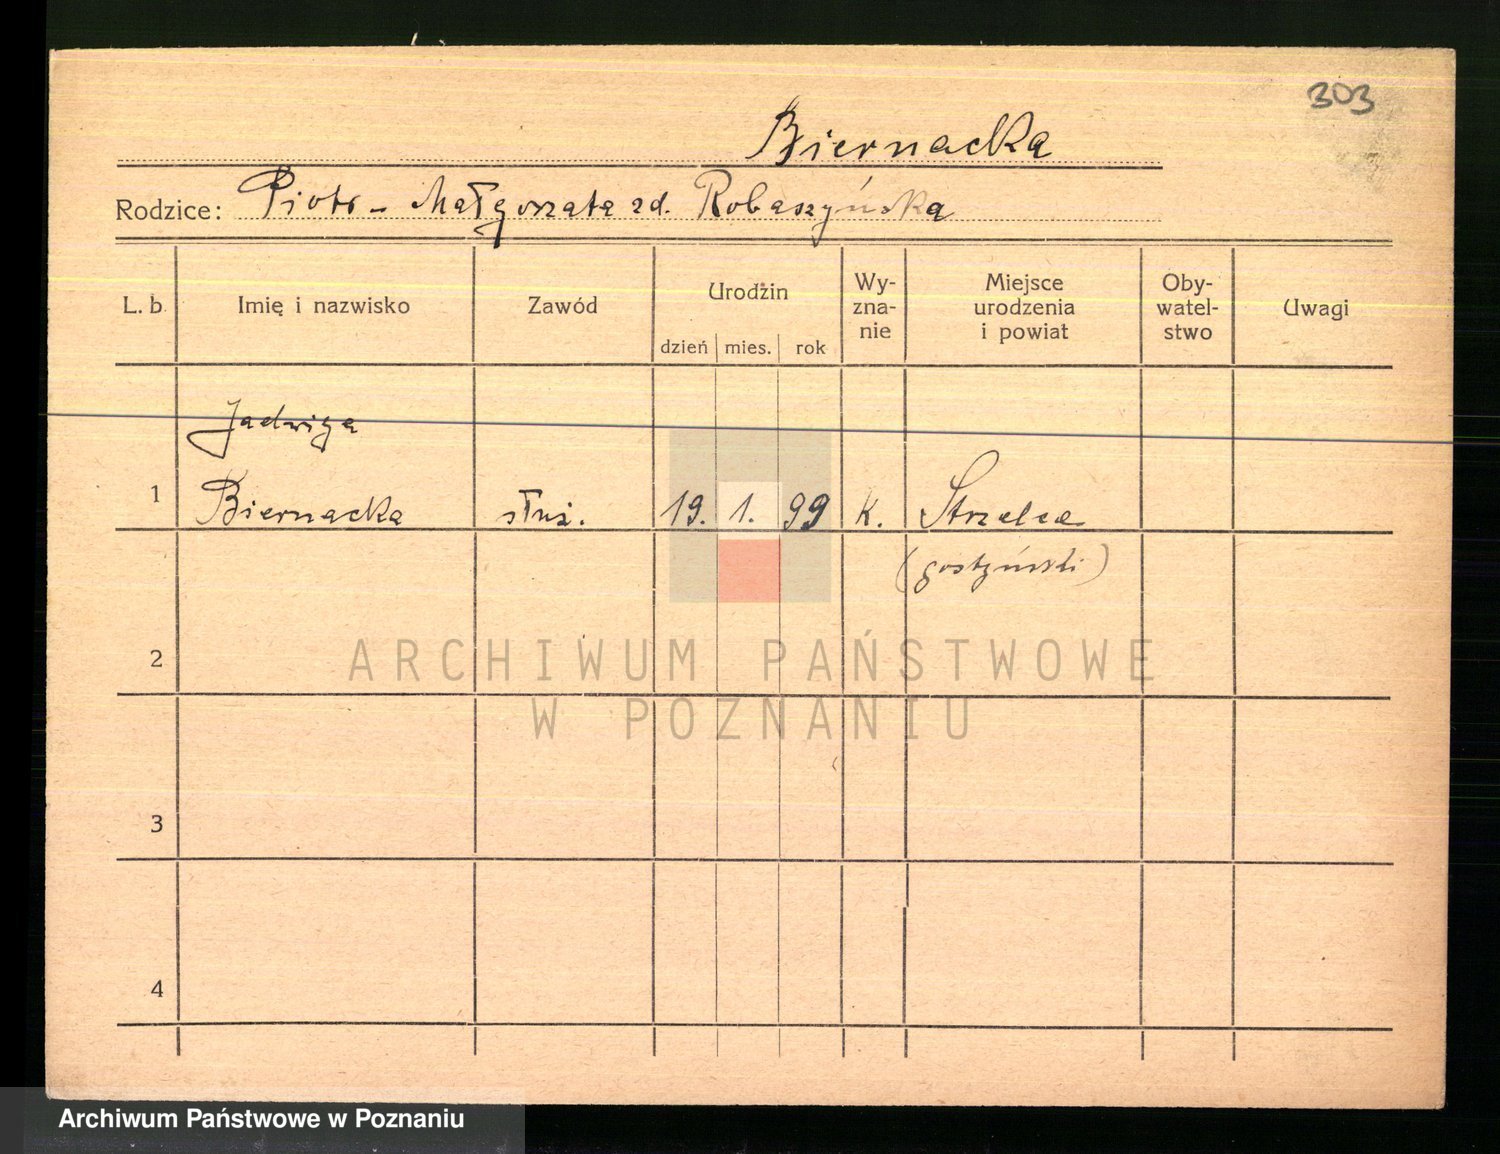 303
Biernacka
Rodzice: Piotr – Małgorzata zd. Robaszyńska
L. b. Imię i nazwisko Zawód Urodzin dzień mies. rok Wy-zna-nie Miejsce urodzenia i powiat Oby-watel-stwo Uwagi
Jadwiga
1 Biernacka służ. 19. 1. 99 k. Strzelce
(gostyński)
2
ARCHIWUM PAŃSTWOWE
W POZNANIU
3
4
Archiwum Państwowe w Poznaniu